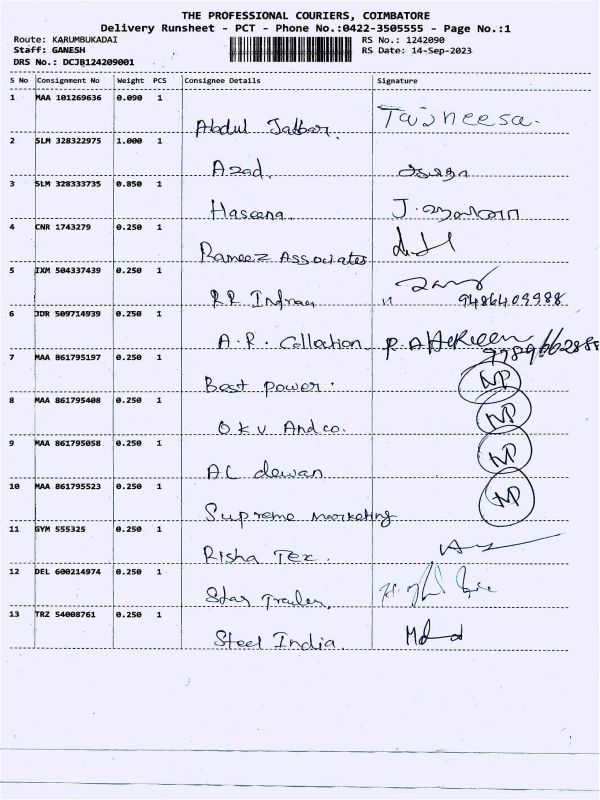 THE PROFESSIONAL COURIERS, COIMBATORE
Delivery Runsheet - PCT - Phone No.:0422-3505555 - Page No.:1
Route: KARUMBUKADAI RS No.: 1242090
Staff: GANESH RS Date: 14-Sep-2023
DRS No.: DCJB124209001
S No Consignment No Weight PCS Consignee Details Signature
1 MAA 101269636 0.090 1
Abdul Jabbar. Tajneesa.
2 SLM 328322975 1.000 1
Azad.
3 SLM 328333735 0.850 1
Haseena. J.
4 CNR 1743279 0.250 1
Rameez Associates
5 IXM 504337439 0.250 1
RR Infraa 9486409988
6 JDR 509714939 0.250 1
A.R. Collection R.A
7 MAA 861795197 0.250 1
Best power. NP
8 MAA 861795408 0.250 1
OKV And co. NP
9 MAA 861795058 0.250 1
AL dewan NP
10 MAA 861795523 0.250 1
Supreme marketing NP
11 GYM 555325 0.250 1
Risha Tex.
12 DEL 600214974 0.250 1
Star Trader.
13 TRZ 54008761 0.250 1
Steel India.